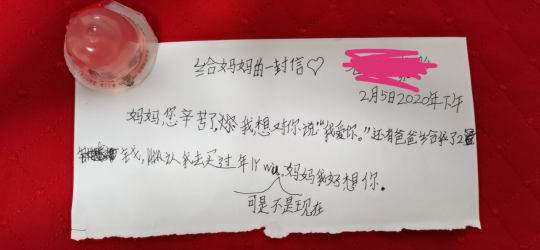 给妈妈的一封信♡
2月5日2020年下午
妈妈,您辛苦了,我想对你说“我爱你。”还有爸爸给了2
钱,让我去买过年 wu,妈妈我好想你。
可是不是现在